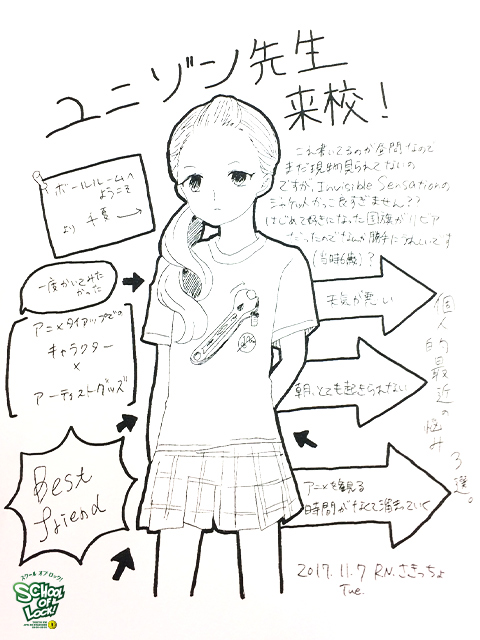 ユニゾン先生
来校!
これ書いてるのが金曜なので
まだ現物見られてないの
ですが、Invisible Sensationの
ジャケットかっこ良すぎません??
はじめて好きになった国旗がリビア
だったのでなんか勝手にうれしいです
(当時6歳)?
ボールルームへ
ようこそ
より 千夏 →
一度かいてみた
かった
アニメタイアップでの
キャラクター
×
アーティストグッズ
Best
friend
天気が悪い
朝、とても起きられない
アニメを観る
時間がなくて溜まっていく
個人的最近の悩み3選。
2017.11.7 R.N.さきっちょ
Tue.
スクール オブ ロック!
SCHOOL
OF
LOCK!